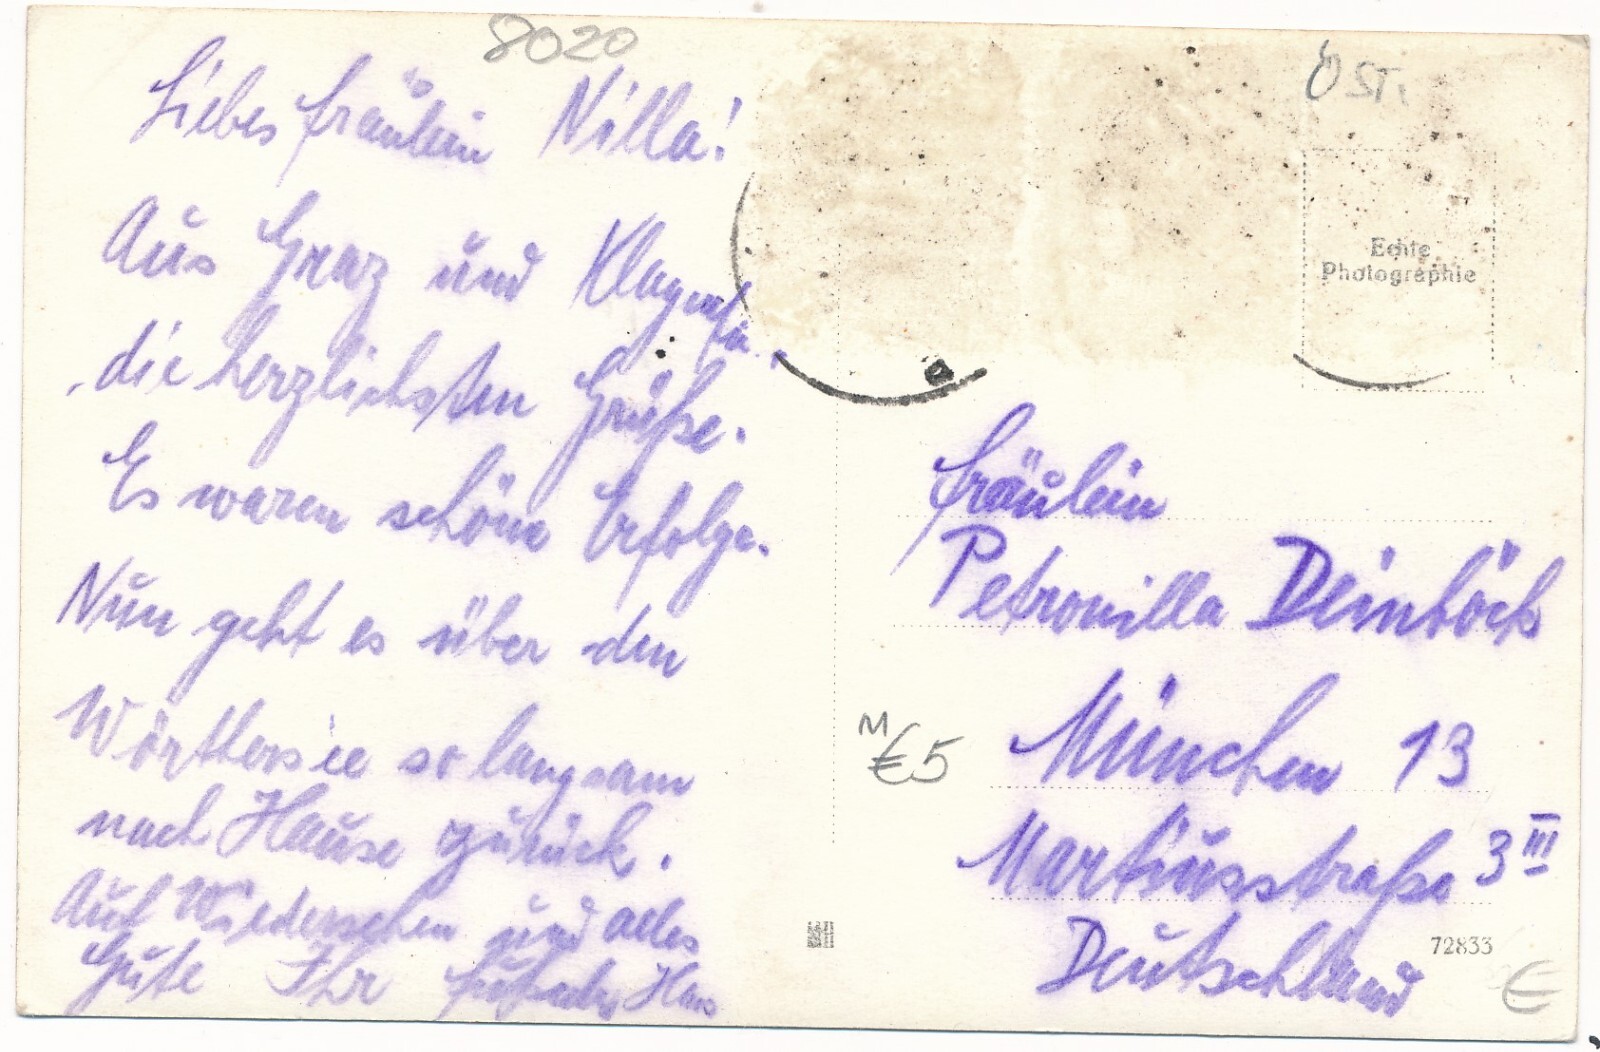 8020
Liebes Fräulein Nilla!
Aus Graz und Klagenfu
die herzlichsten Grüße.
Es waren schöne Erfolge.
Nun geht es über den
Wörthersee so langsam
nach Hause zurück.
Auf Wiedersehen und alles
Gute Ihr Hans
ÖST.
Echte
Photographie
Fräulein
Petronilla Deinböck
München 13
Martiusstraße 3 III
Deutschland
M
€5
72833
€